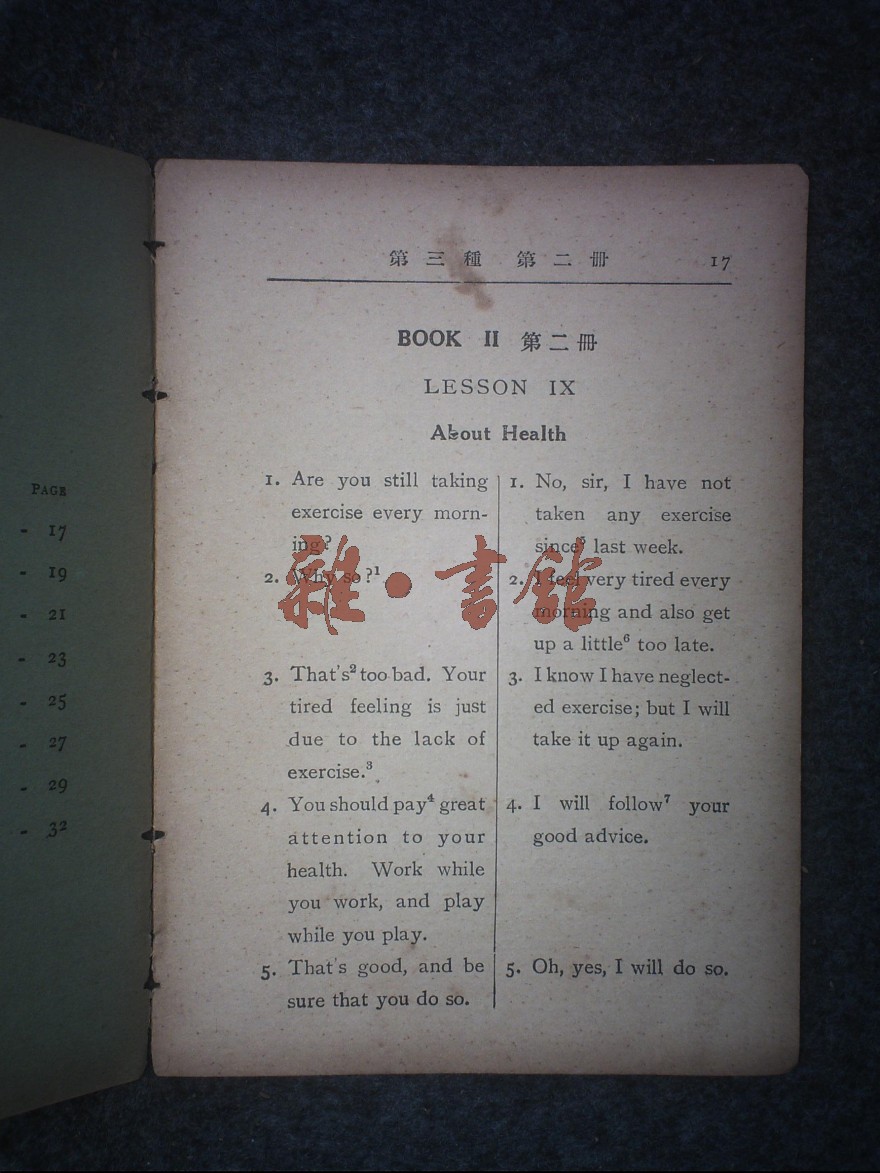 PAGE
- 17
- 19
- 21
- 23
- 25
- 27
- 29
- 32
第三種 第二冊 17
BOOK II 第二冊
LESSON IX
About Health
1. Are you still taking
exercise every morn-
ing?
2. Why so?¹
3. That's² too bad. Your
tired feeling is just
due to the lack of
exercise.³
4. You should pay⁴ great
attention to your
health. Work while
you work, and play
while you play.
5. That's good, and be
sure that you do so.
1. No, sir, I have not
taken any exercise
since⁵ last week.
2. I feel very tired every
morning and also get
up a little⁶ too late.
3. I know I have neglect-
ed exercise; but I will
take it up again.
4. I will follow⁷ your
good advice.
5. Oh, yes, I will do so.
雜·書館